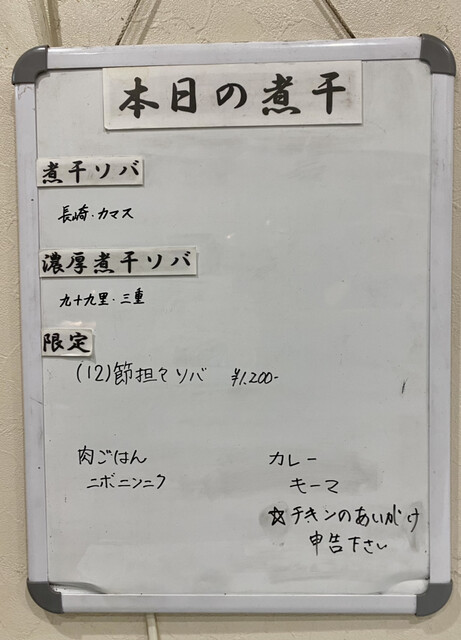 本日の煮干
煮干ソバ
長崎・カマス
濃厚煮干ソバ
九十九里・三重
限定
(12)節担々ソバ ¥1,200-
肉ごはん
ニボニンニク
カレー
キーマ
☆チキンのあいがけ
申告下さい